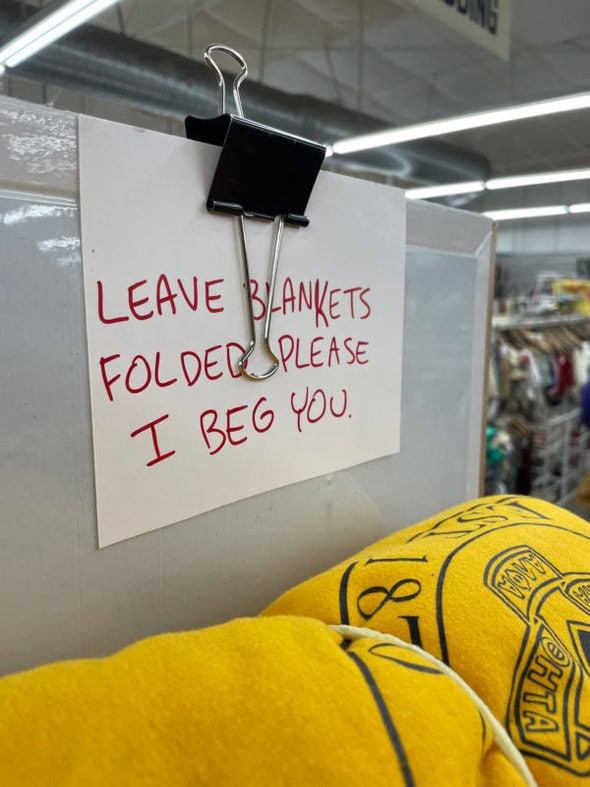 DING
LEAVE BLANKETS
FOLDED PLEASE
I BEG YOU.
187